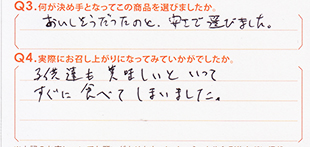 Q3.何が決め手となってこの商品を選びましたか。
おいしそうだったのと、安さで選びました。
Q4.実際にお召し上がりになってみていかがでしたか。
子供達も美味しいといって
すぐに食べてしまいました。